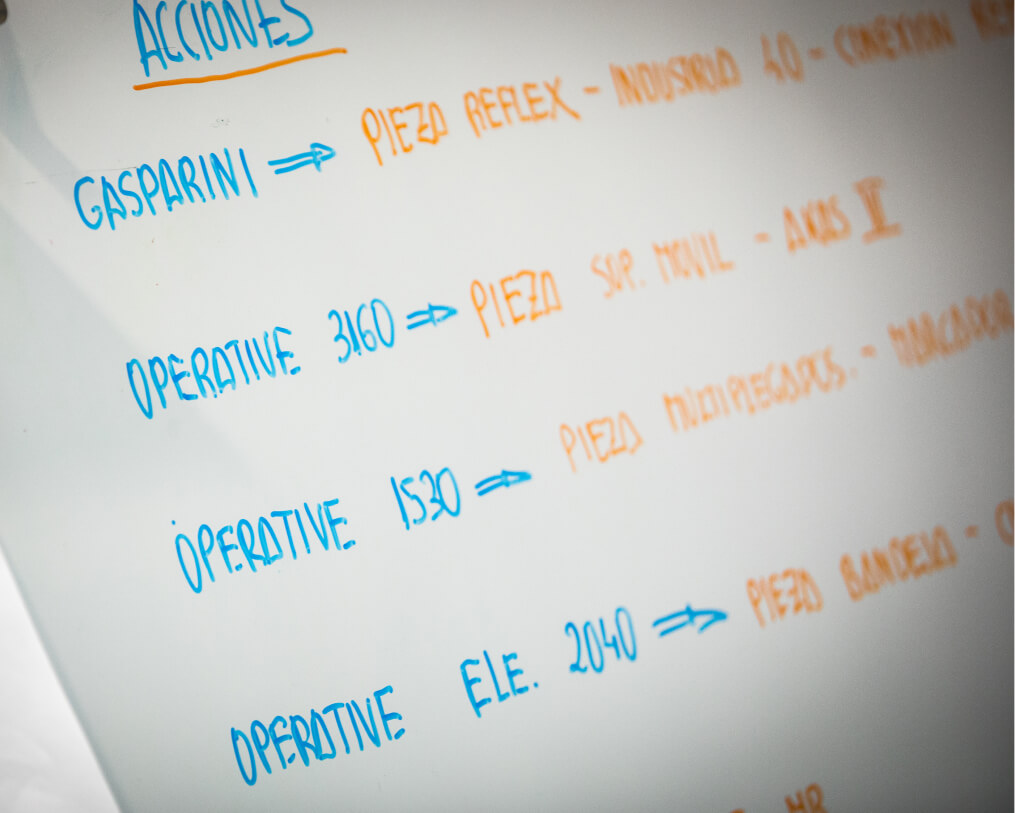 ACCIONES
GASPARINI ⇒ PIEZA REFLEX - INDUSTRIA 4.0 - CONEXION
OPERATIVE 3160 ⇒ PIEZA SOP. MOVIL - AKAS II
OPERATIVE 1530 ⇒ PIEZA MULTIPLEGADOS. - MARCADOR
OPERATIVE ELE. 2040 ⇒ PIEZA BANDEJA -
HR